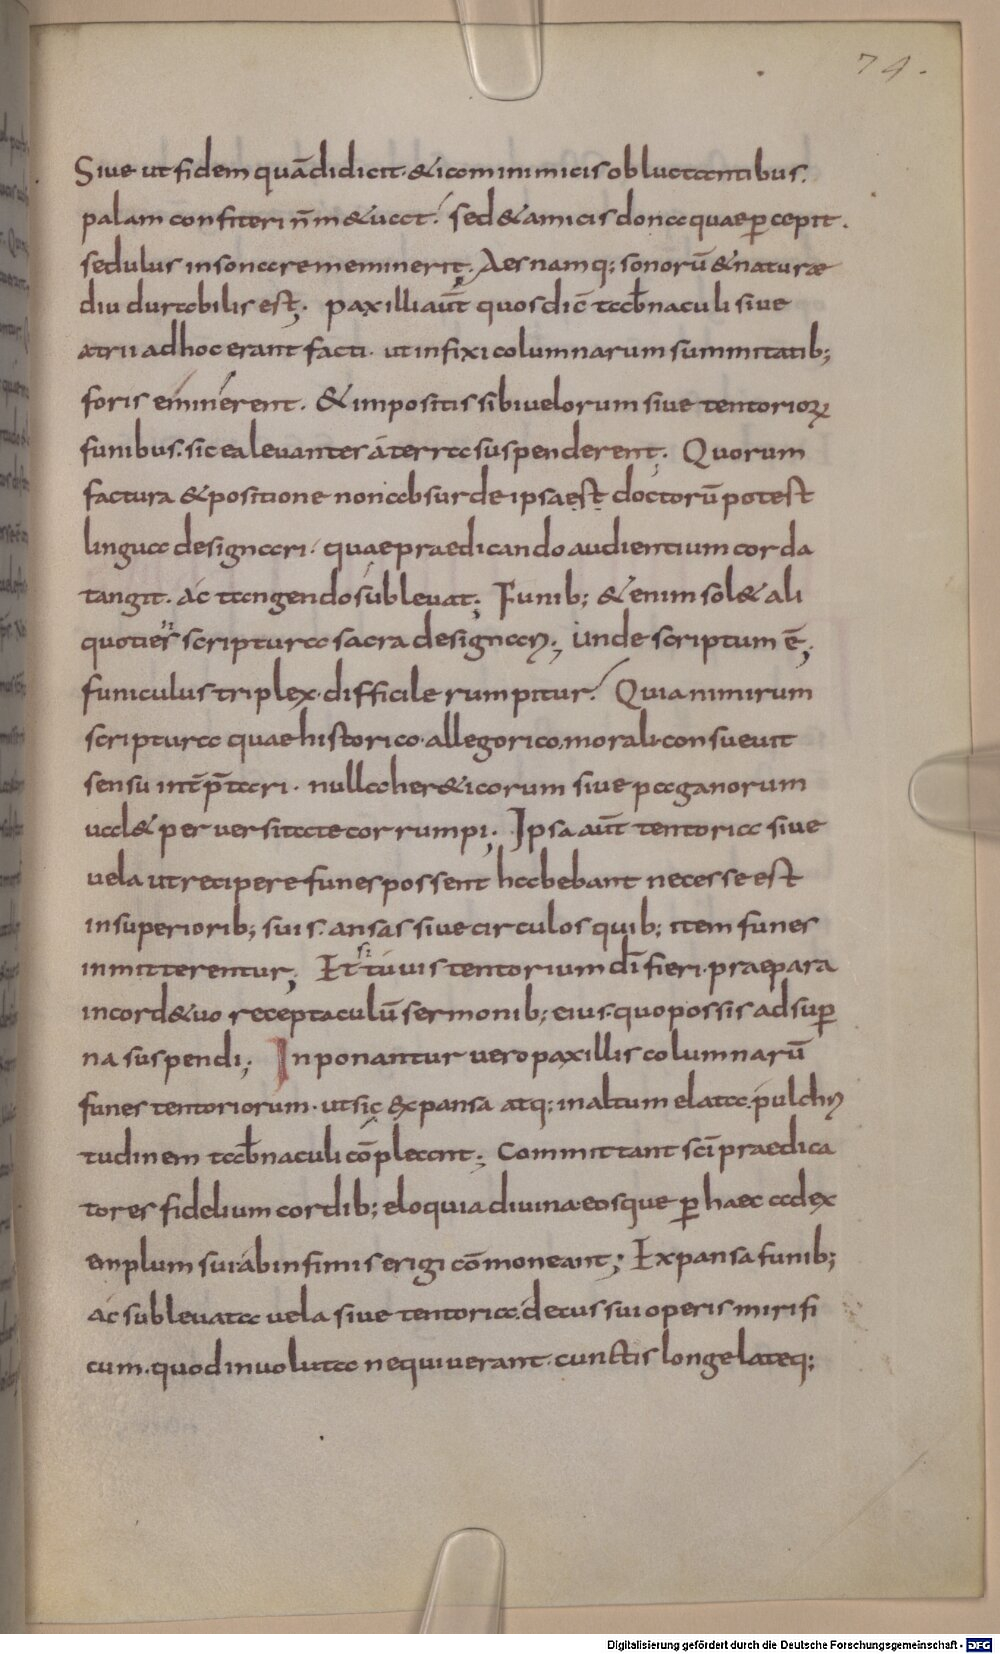 74.
Siue ut fidem quā didicit · & iam inimicis obluctantibus.
palam confiteri n̄ m&uat. sed & amicis donec quae p̲cepit.
sedulus insonare meminerit; Aes namq; sonorū & naturæ
diu durabilis est; paxilli aūt quos dic̄ tab̄naculi siue
atrii ad hoc erant facti. ut infixi columnarum summitatib;
foris eminerent. & impositis sibi uelorum siue tentorioꝝ
funibus. sic ea leuantes á terra suspenderent; Quorum
factura & positione non absurde ipsa est doctorū potest
lingua designari. quae praedicando audientium corda
tangit. ác tangendo subleuat; Funib; & enim sol& ali
quotiens scriptura sacra designari; unde scriptum ē;
funiculus triplex · difficile rumpitur. Quia nimirum
scriptura quae historico · allegorico. morali · consueuit
sensu int̄p̄tari. nulla her&icorum siue paganorum
ual& peruersitate corrumpi; Ipsa aūt tentoria siue
uela ut recipere funes possent habebant necesse est
in superiorib; suis. ansas siue circulos quib; item funes
inmitterentur; Et si tu uis tentorium dī fieri. praepara
in corde tuo receptaculū sermonib; eius. quo possis ad sup̲
na suspendi; Inponantur uero paxillis columnarū
funes tentoriorum · ut sic expansa atq; in altum elata. pulchri
tudinem tab̄naculi cōpleant; Committant scī praedica
tores fidelium cordib; eloquia diuina · eosque p̲ haec ad ex
emplum sui ab infimis erigi cōmoneant; Expansa funib;
ác subleuata uela siue tentoria. decus sui operis mirifi
cum. quod inuoluta nequiuerant. cunctis longe lateq;
Digitalisierung gefördert durch die Deutsche Forschungsgemeinschaft - DFG